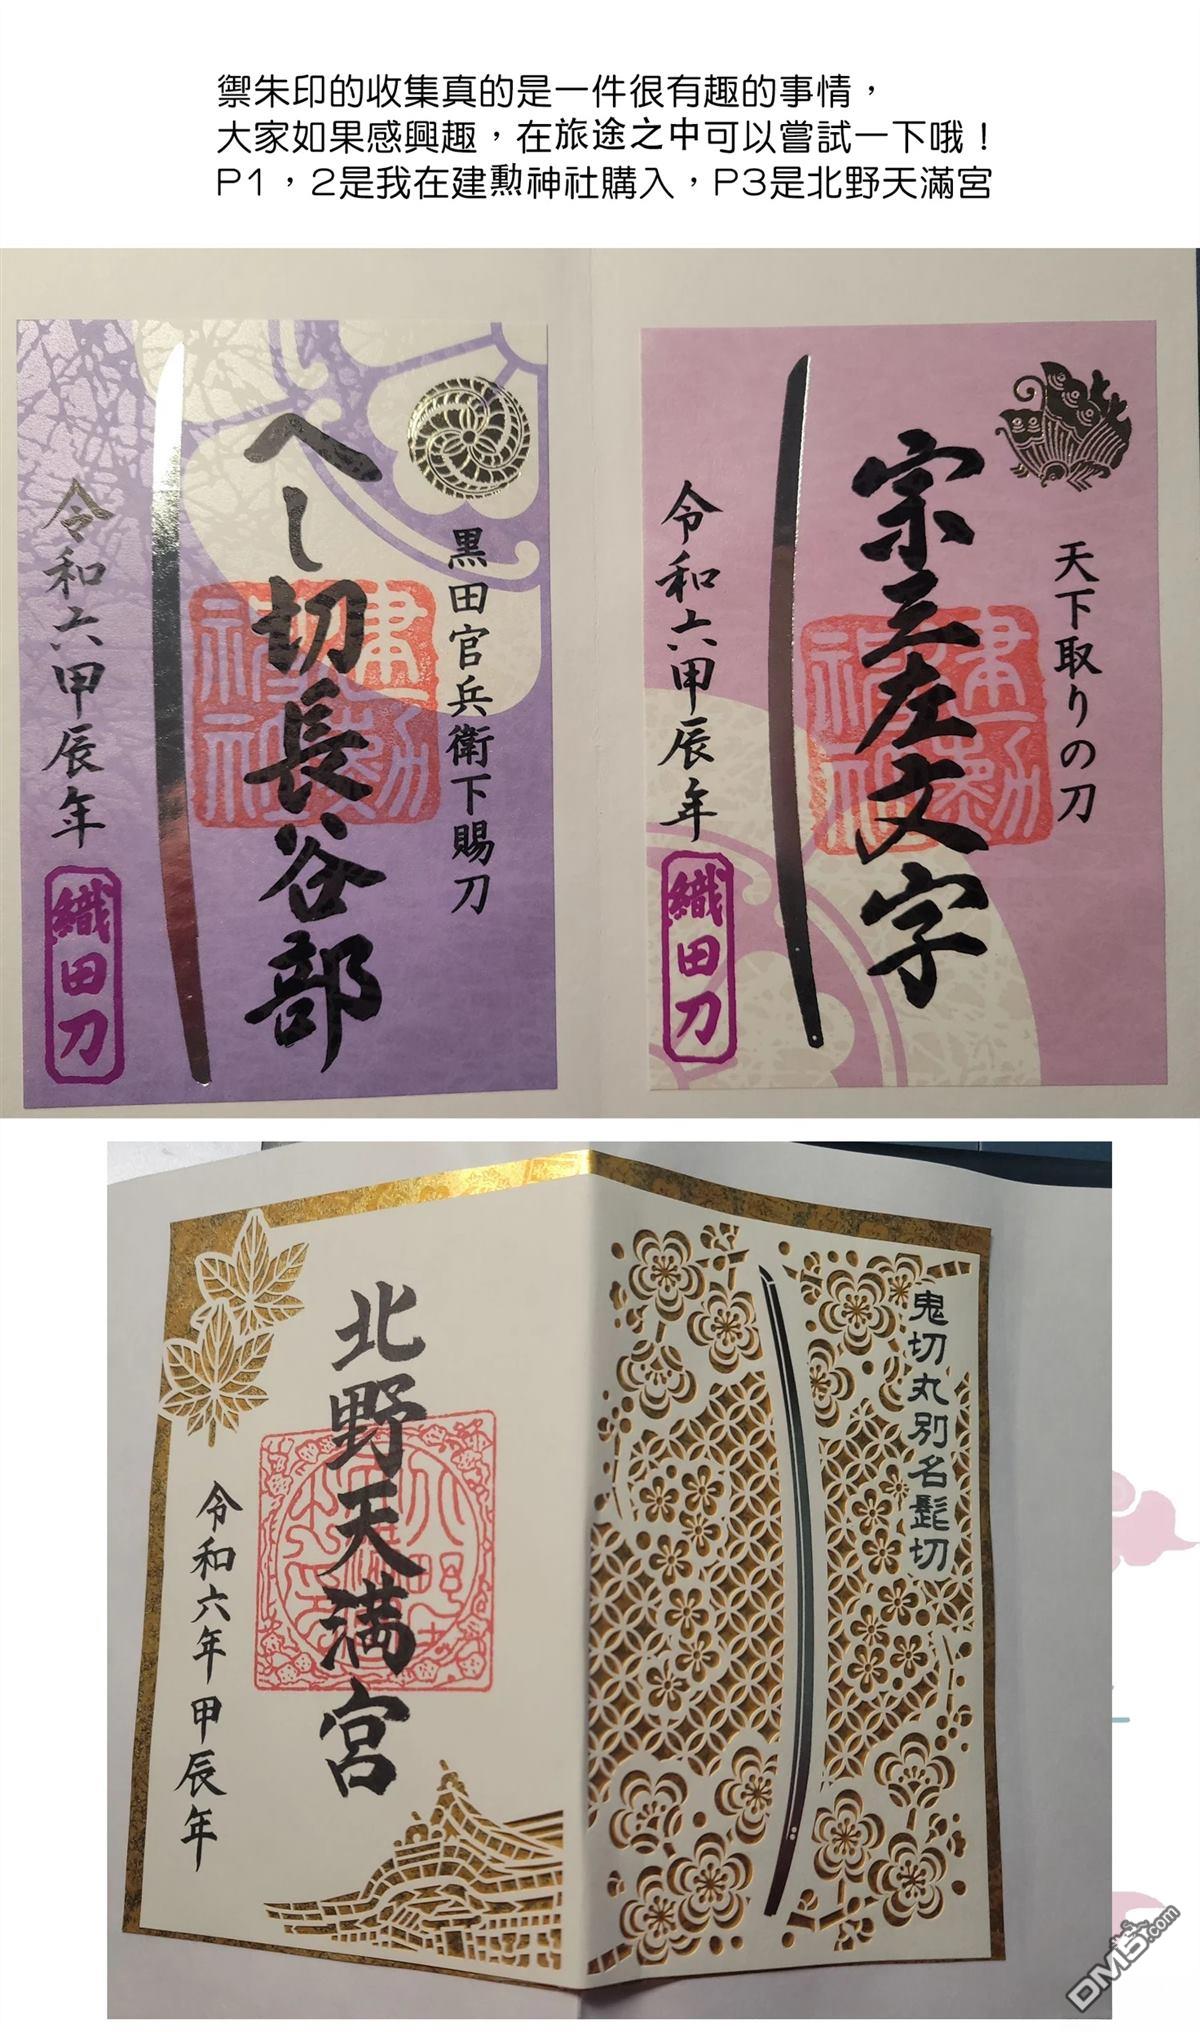 禦朱印的收集真的是一件很有趣的事情，
大家如果感興趣，在旅途之中可以嘗試一下哦！
P1，2是我在建勲神社購入，P3是北野天滿宮
黒田官兵衛下賜刀
へし切長谷部
令和六甲辰年
織田刀
天下取りの刀
宗三左文字
令和六甲辰年
織田刀
鬼切丸別名髭切
北野天満宮
令和六年甲辰年
DM5.com